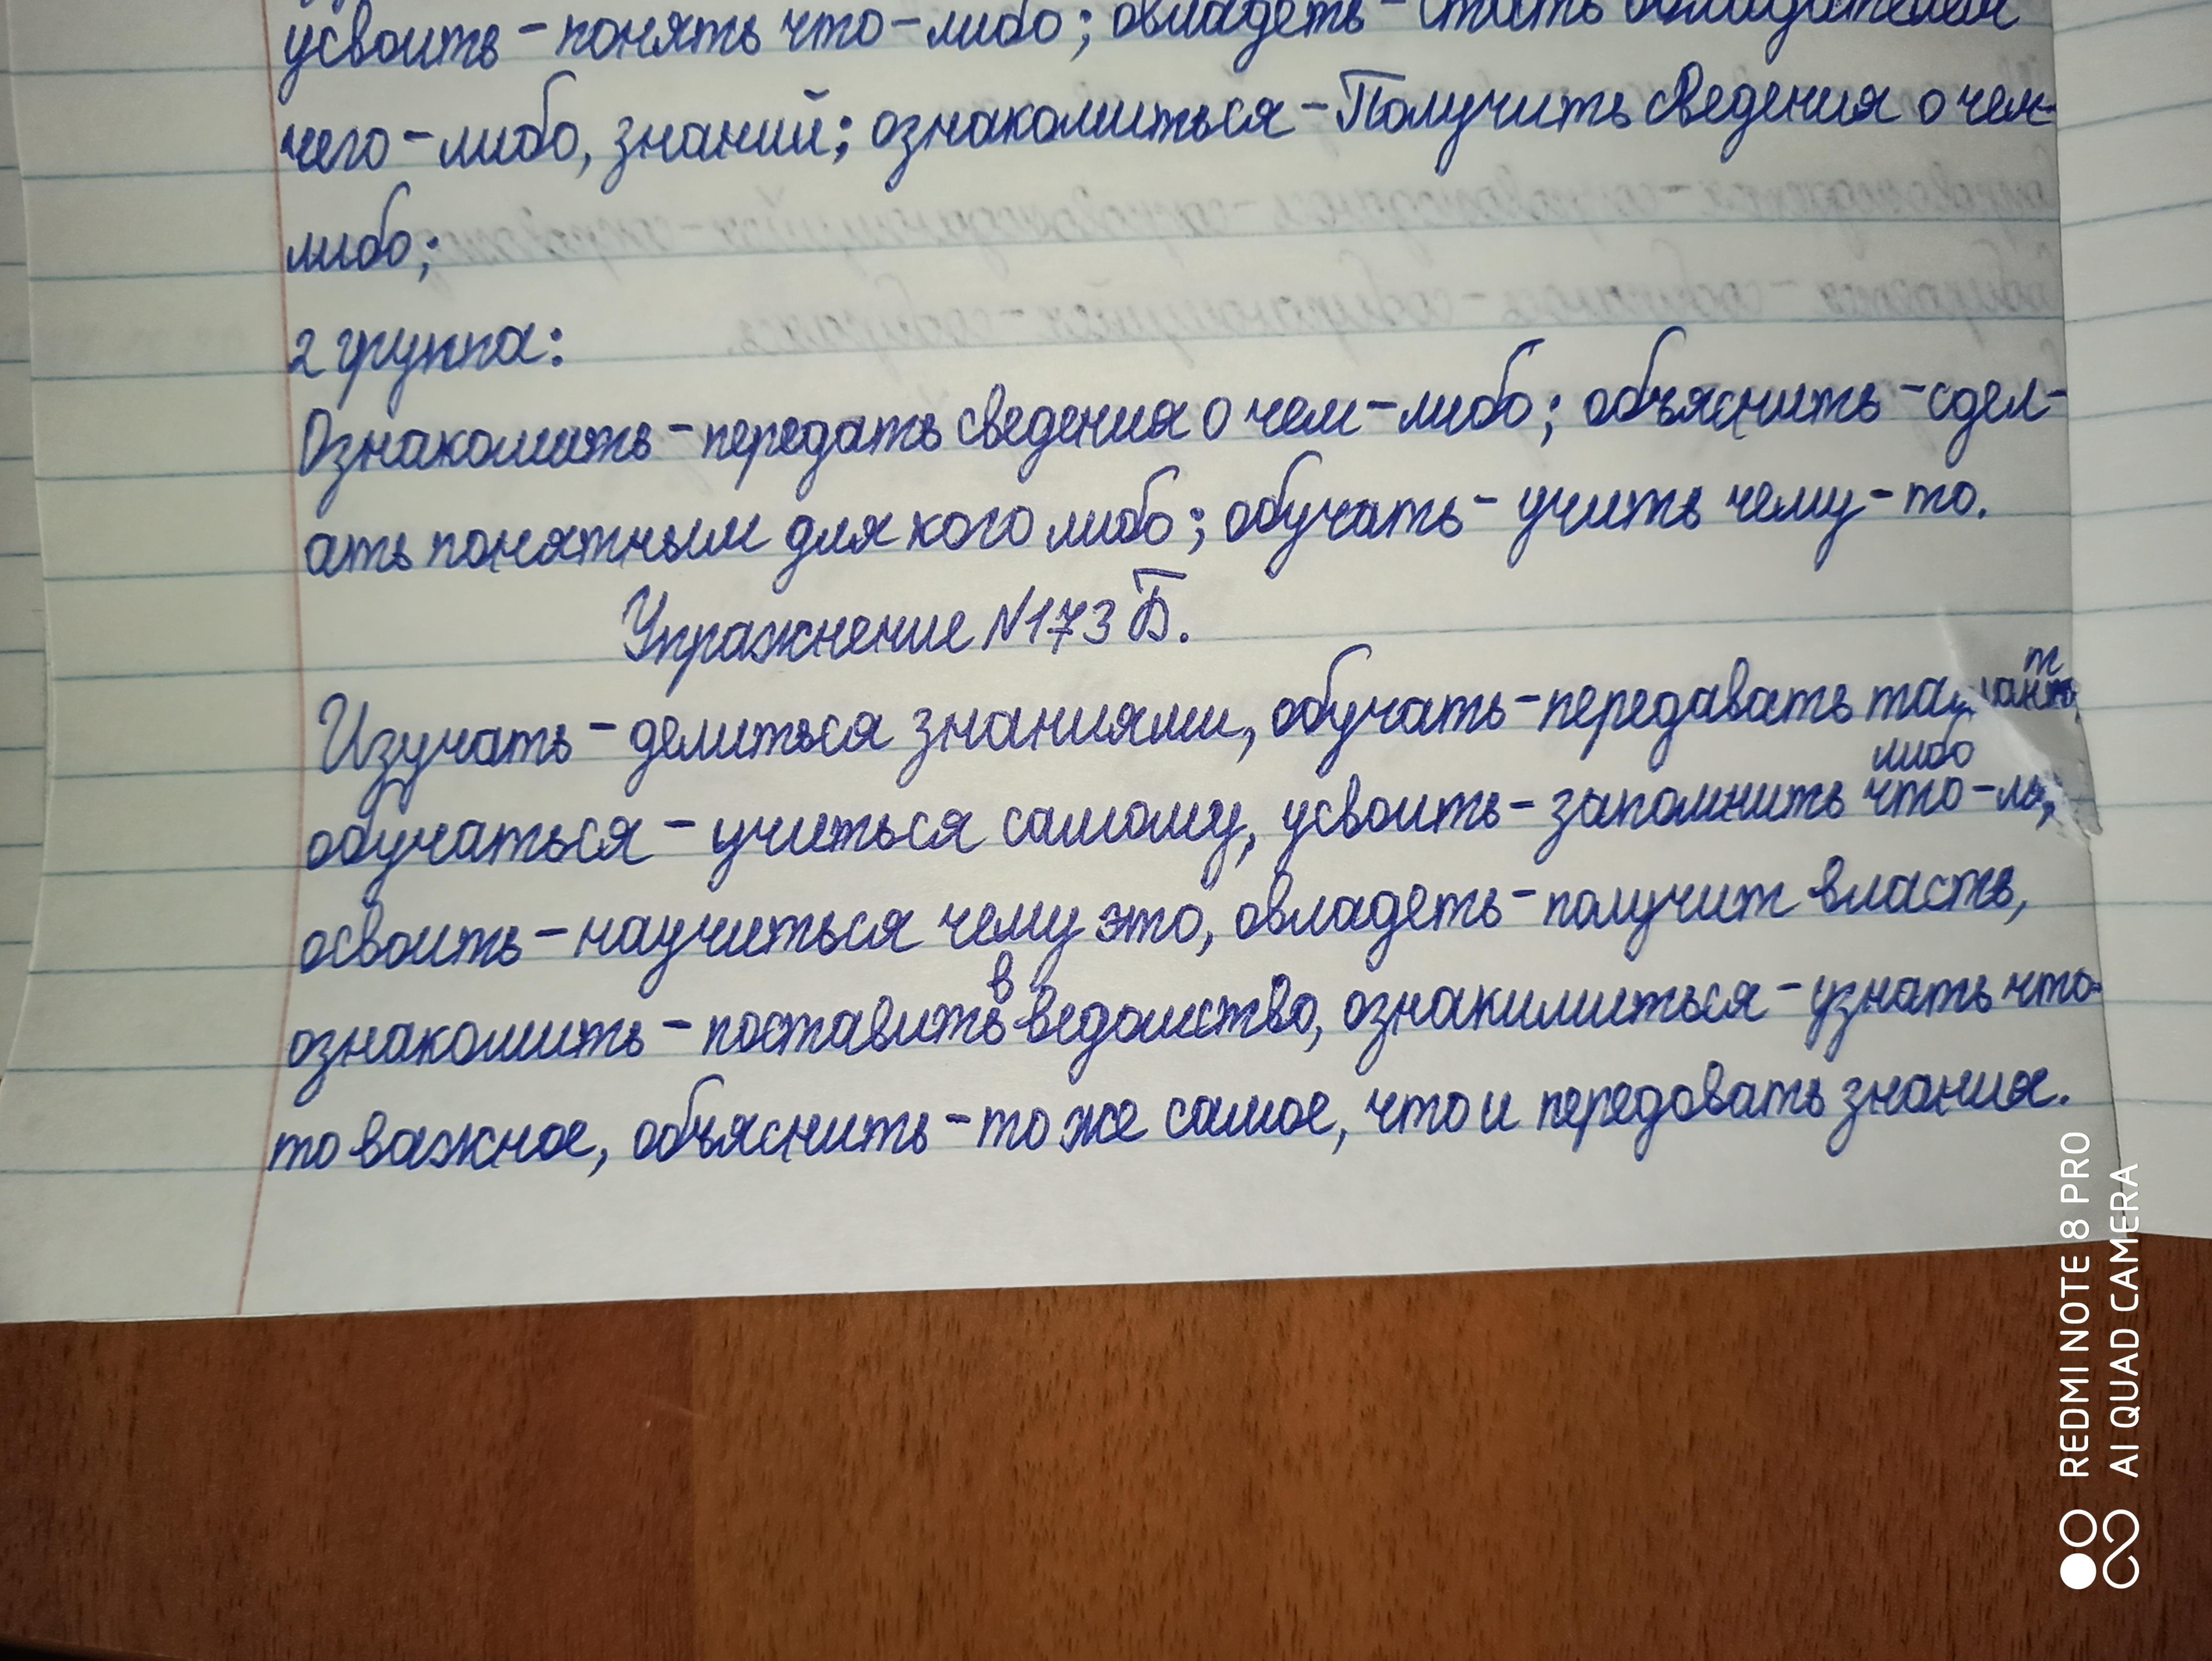 усвоить - понять что-либо; овладеть - стать обладателем
чего-либо, знаний; ознакомиться - Получить сведения о чем-
либо;
2 группа:
Ознакомить - передать сведения о чем-либо; объяснить - сдел-
ать понятным для кого либо; обучать - учить чему-то.
Упражнение №173 Б.
Изучать - делиться знаниями, обучать - передавать
либо
обучаться - учиться самому, усвоить - запомнить что-
освоить - научиться чему это, овладеть - получит власть,
в
ознакомить - поставить ведомство, ознакилиться - узнать что-
то важное, объяснить - то же самое, что и передовать знания.
REDMI NOTE 8 PRO
AI QUAD CAMERA